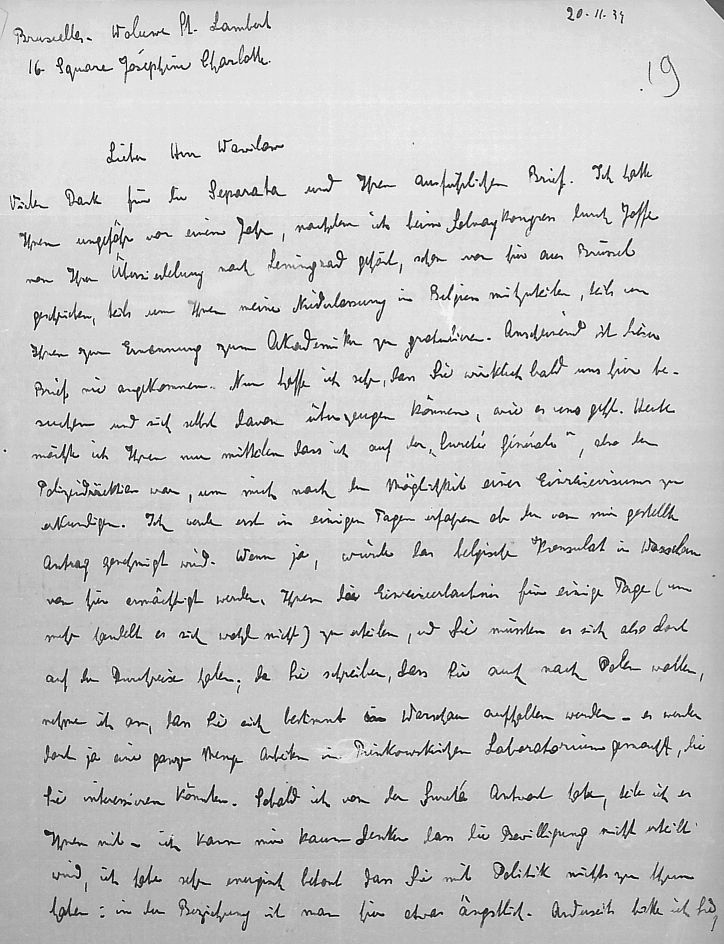 20-11-34
Bruxelles - Woluwe St. Lambert
16 Square Joséphine Charlotte.
19
Lieber Herr Wawilow
Vielen Dank für die Separata und Ihren ausführlichen Brief. Ich hatte
Ihnen ungefähr vor einem Jahr, nachdem ich beim Solvaykongress durch Joffe
von Ihrer Übersiedelung nach Leningrad gehört, schon von hier aus Brüssel
geschrieben, teils um Ihnen meine Niederlassung in Belgien mitzuteilen, teils um
Ihnen zur Ernennung zum Akademiker zu gratulieren. Anscheinend ist dieser
Brief nie angekommen. Nun hoffe ich sehr, dass Sie wirklich bald uns hier be-
suchen und sich selbst davon überzeugen können, wie es uns geht. Heute
möchte ich Ihnen nur mitteilen dass ich auf der „Sureté Générale“, also der
Polizeidirektion war, um mich nach der Möglichkeit eines Einreisevisums zu
erkundigen. Ich werde erst in einigen Tagen erfahren ob der von mir gestellte
Antrag genehmigt wird. Wenn ja, würde das belgische Konsulat in Warschau
von hier ermächtigt werden, Ihnen die Einreiseerlaubnis für einige Tage (um
mehr handelt es sich wohl nicht) zu erteilen, und Sie müssten es sich also dort
auf der Durchreise holen; da Sie schreiben, dass Sie auch nach Polen wollen,
nehme ich an, dass Sie sich bestimmt in Warschau aufhalten werden - es werden
dort ja eine ganze Menge Arbeiten im Pienkowskischen Laboratorium gemacht, die
Sie interessieren könnten. Sobald ich von der Sureté Antwort habe, teile ich es
Ihnen mit - ich kann mir kaum denken dass die Bewilligung nicht erteilt
wird, ich habe sehr energisch betont dass Sie mit Politik nichts zu thun
haben: in der Beziehung ist man hier etwas ängstlich. Anderseits hatte ich